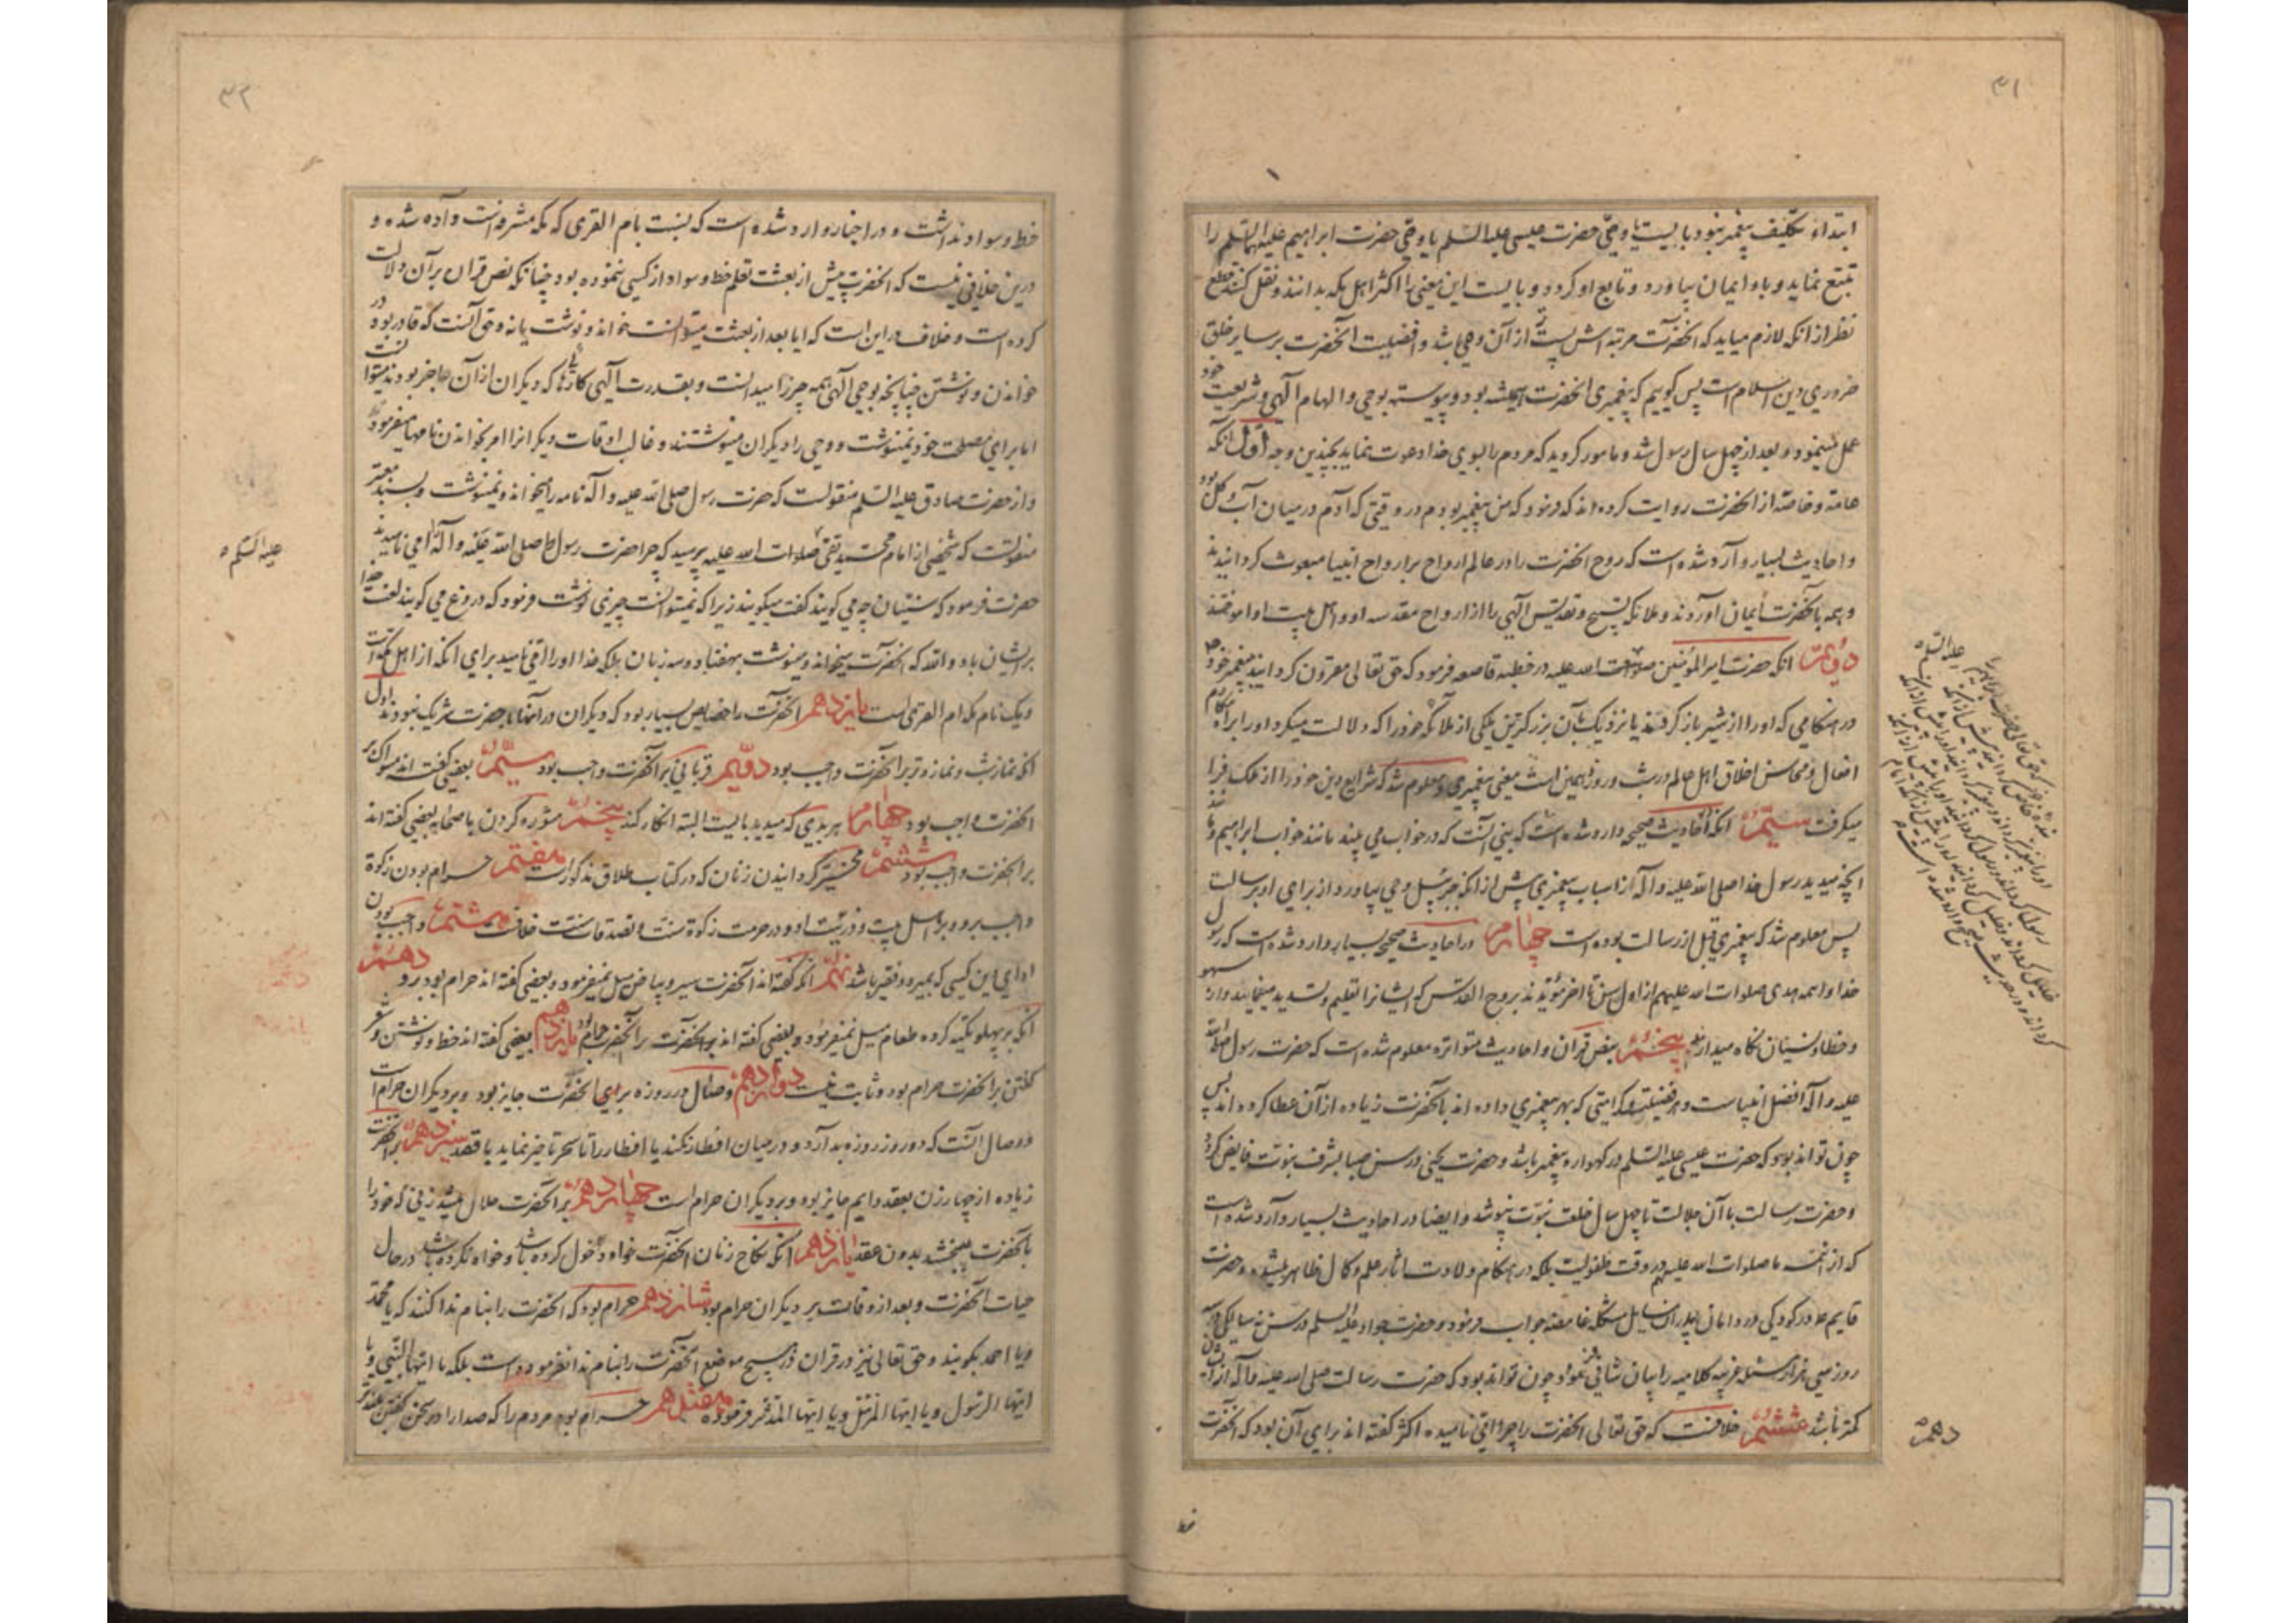 ۳۱
ابتداء تکلیف پیغمبر نبود بایست یا وصی حضرت عیسی علیه السلم یا وصی حضرت ابراهیم علیهما السلم را
تتبع نماید و باو ایمان بیاورد و تابع او کردد و بایست این معنی را اکثر اهل مکه بدانند و نقل کنند قطع
نظر از انکه لازم میاید که انحضرت مرتبه اش پست تر از آن وصی باشد و افضلیت آنحضرت بر سایر خلق
ضروری دین اسلام است پس کوییم که پیغمبری انحضرت همیشه بود و پیوسته بوحی و الهام آلهی و شریعت خود
عمل مینمود و بعد از چهل سال رسول شد و مامور کردید که مردم را بسوی خدا دعوت نماید بچندین وجه اول آنکه
عامه و خاصه از انحضرت روایت کرده اند که فرمود که من پیغمبر بودم در وقتی که آدم درمیان آب و کل بود
و احادیث بسیار وارد شده است که روح انحضرت را در عالم ارواح بر ارواح انبیا مبعوث کردانیدند
و همه بانحضرت ایمان آوردند و ملائکه تسبیح و تقدیس آلهی را از ارواح مقدسه او و اهل بیت او اموختند
دویم انکه حضرت امیرالمؤمنین صلوات الله علیه در خطبه قاصعه فرمود که حق تعالی مقرون کردانید به پیغمبر خود
در هنکامی که او را از شیر باز کرفتند یا نزدیک بآن بزرکترین ملکی از ملائکه خود را که دلالت میکرد او را براه مکارم
افعال و محاسن اخلاق اهل عالم در شب و روز و همین است معنی پیغمبری و معلوم شد که شرایع دین خود را از ملک فرا
میکرفت سیم انکه احادیث صحیحه وارد شده است که نبی آنست که در خواب می بیند مانند خواب ابراهیم و مانند
آنچه میدید رسول خدا صلی الله علیه و آله از اسباب پیغمبری پیش از انکه جبرئیل وحی بیاورد از برای او برسالت
پس معلوم شد که پیغمبری قبل از رسالت بوده است چهارم در احادیث صحیحه بسیار وارد شده است که رسول
خدا و ائمه هدی صلوات الله علیهم از اول سن تا آخر مؤیدند بروح القدس که ایشانرا تعلیم و تسدید مینماید و از سهو
و خطا و نسیان نکاه میدارد پنجم بنص قرآن و احادیث متواتره معلوم شده است که حضرت رسول صلی الله
علیه و آله افضل انبیاست و هر فضیلت و کرامتی که بهر پیغمبری داده اند بانحضرت زیاده از آن عطا کرده اند پس
چون تواند بود که حضرت عیسی علیه السلم در کهواره پیغمبر باشد و حضرت یحیی در سن صبا بشرف نبوت فایض کردد
و حضرت رسالت با آن جلالت تا چهل سال خلعت نبوت نپوشد و ایضا در احادیث بسیار وارد شده است
که از ائمه ما صلوات الله علیهم در وقت طفولیت بلکه در هنکام ولادت اثار علم و کمال ظاهر میشد و حضرت
قایم در کودکی در دامان پدر از مسایل مشکله غامضه جواب فرمود و حضرت جواد علیه السلم در سن نه سالکی در سه
روز سی هزار مسئله غریبه کلامیه را بیان شافی نمود و چون تواند بود که حضرت رسالت صلی الله علیه و آله از ایشان
کمتر باشد ششم خلافست که حق تعالی انحضرت را چرا امی نامیده اکثر کفته اند برای آن بود که انحضرت
دهم
خط
۳۲
خط و سواد نداشت و در اخبار وارد شده است که نسبت بام القری که مکه مشرفه است داده شده و
درین خلافی نیست که انحضرت پیش از بعثت تعلم خط و سواد از کسی ننموده بود چنانکه نص قران بر آن دلالت
کرده است و خلاف در این است که ایا بعد از بعثت میتوانست خواند و نوشت یا نه و حق آنست که قادر بود در
خواندن و نوشتن چنانچه بوحی آلهی همه چیز را میدانست و بقدرت آلهی کارها که دیکران از آن عاجز بودند میتوانست
اما برای مصلحت خود نمینوشت و وحی را دیکران مینوشتند و غالب اوقات دیکرانرا امر بخواندن نامها میفرمود
و از حضرت صادق علیه السلم منقولست که حضرت رسول صلی الله علیه و آله نامه را میخواند و نمینوشت و بسند معتبر
منقولست که شخصی از امام محمد تقی صلوات الله علیه پرسید که چرا حضرت رسول صلی الله علیه و آله را امی نامیدند
حضرت فرمود که سنیان چه می کویند کفت میکویند زیرا که نمیتوانست چیزی نوشت فرمود که دروغ می کویند لعنت خدا
بر ایشان باد والله که انحضرت میخواند و مینوشت بهفتاد و سه زبان بلکه خدا او را امی نامید برای انکه از اهل مکه است
و یک نام مکه ام القری است یازدهم انحضرت را خصایص بسیار بود که دیکران در آنها با حضرت شریک نبودند اول
انکه نماز شب و نماز وتر بر انحضرت واجب بود دویم قربانی بر آنحضرت واجب بود سیم بعضی کفته اند مسواک بر
انحضرت واجب بود چهارم هر بدی که میدید بایست البته انکار کند پنجم مشوره کردن با صحابه بعضی کفته اند
بر انحضرت واجب بود ششم مخیر کردانیدن زنان که در کتاب طلاق مذکور است هفتم حرام بودن زکوة
واجب بر او و بر اهل بیت و ذریت او و در حرمت زکوة سنت و تصدقات سنت خلافست هشتم واجب بودن
ادای دین کسی که بمیرد و فقیر باشد نهم انکه کفته اند انحضرت سیر و پیاز میل نمیفرمود و بعضی کفته اند حرام بود بر او دهم
انکه بر پهلو تکیه کرده طعام میل نمیفرمود و بعضی کفته اند بر انحضرت حرام بود یازدهم بعضی کفته اند خط نوشتن و شعر
کفتن بر انحضرت حرام بود و ثابت نیست دوازدهم وصال در روزه برای انحضرت جایز بود و بر دیکران حرام است
و وصال آنست که دو روز روزه بدارد و درمیان افطار نکند یا افطار را تا سحر تاخیر نماید با قصد سیزدهم بر انحضرت
زیاده از چهار زن بعقد دایم جایز بود و بر دیکران حرام است چهاردهم بر انحضرت حلال میشد زنی که خود را
بانحضرت ببخشد بدون عقد پانزدهم انکه نکاح زنان انحضرت خواه دخول کرده باشد و خواه نکرده باشد در حال
حیات آنحضرت و بعد از وفات بر دیکران حرام بود شانزدهم حرام بود که انحضرت را بنام ندا کنند که یا محمد
و یا احمد بکویند و حق تعالی نیز در قران در هیچ موضع آنحضرت را بنام ندا نفرموده است بلکه یا ایها النبی و یا
ایها الرسول و یا ایها المزمل و یا ایها المدثر فرموده هفتدهم حرام بود مردم را که صدا را در سخن کفتن بلندتر
علیه السلم